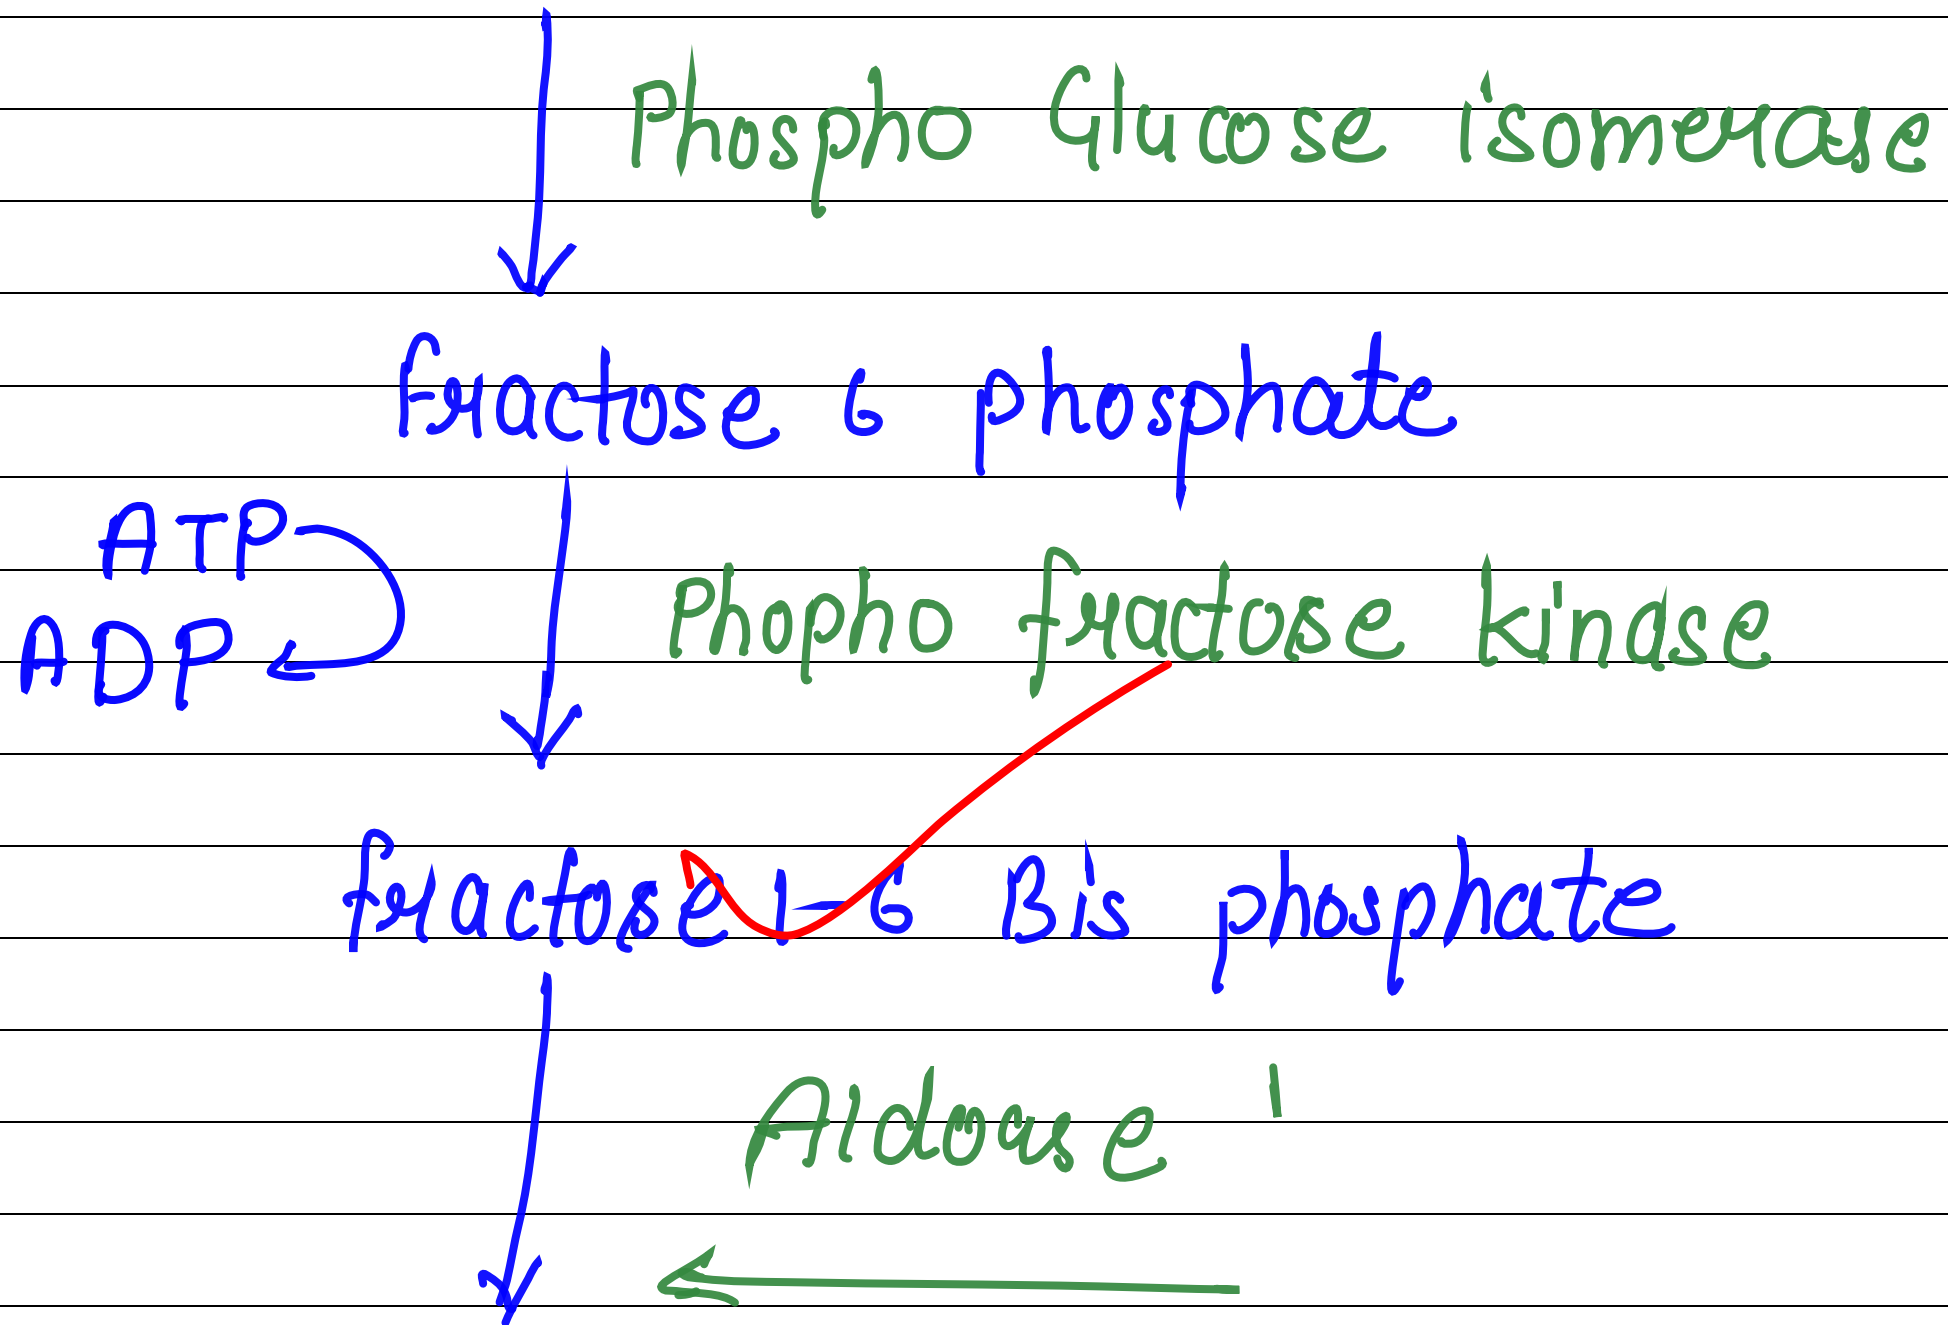 Phospho Glucose isomerase
fractose 6 phosphate
ATP
ADP
Phopho fractose kinase
fractose 1-6 Bis phosphate
Aldoase